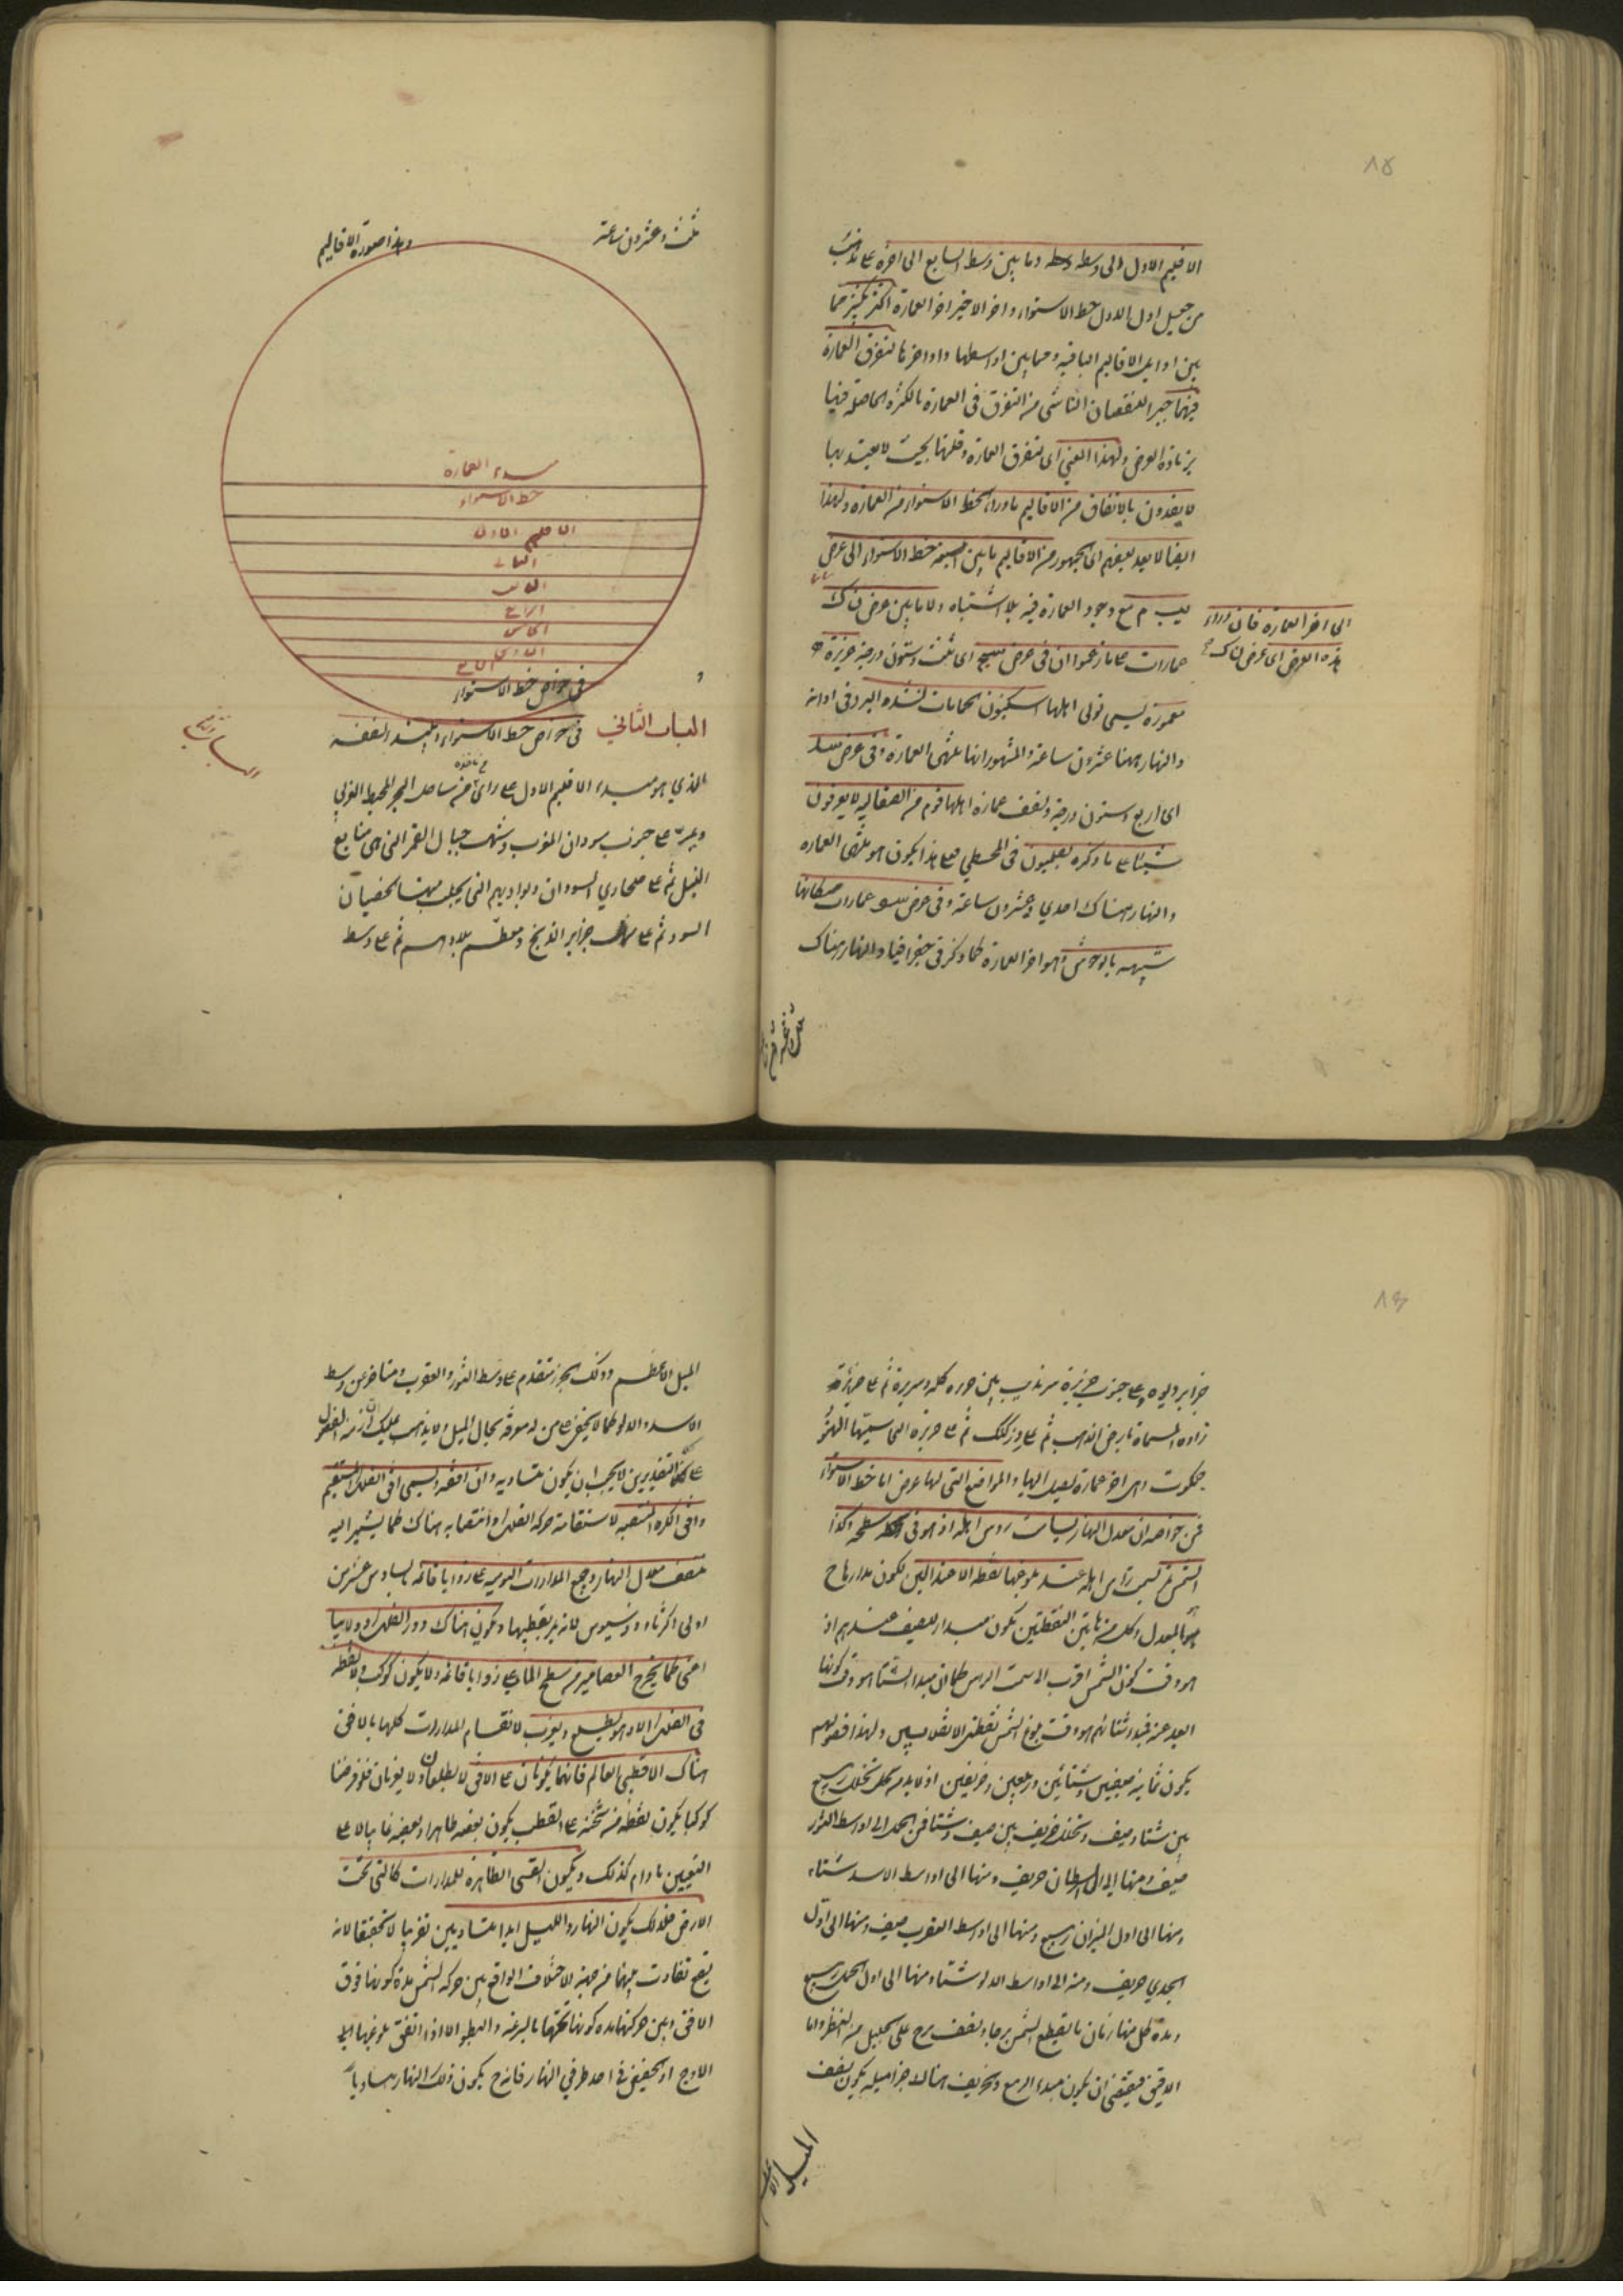 ٨٥
الاقليم الاول الى وسطه وما بين وسط السابع الى اخره على مذهب
من جعل اول الاول خط الاستواء واخر الاخير اخر العمارة اكثر بكثير مما
بين اوايل الاقاليم الباقية ومما بين اواسطها واواخرها لتفرق العمارة
فيهما جبرا للنقصان الناشى من التفرق فى العمارة بالكثرة الحاصلة فيها
بزيادة العرض ولهذا المعنى اى لتفرق العمارة وقلتها بحيث لا يعتد بها
لا يعدون بالاتفاق من الاقاليم ما وراء خط الاستواء من العمارة ولهذا
ايضا لا يعد بعضهم اى الجمهور من الاقاليم ما بين خط الاستواء الى عرض
يب م مع وجود العمارة فيه بلا اشتباه ولا ما بين عرض ن ك
الى اخر العمارة فان وراء
هذه العرض اى عرض ن ك
عمارات على ما زعموا ان فى عرض سج اى ثلث وستون درجة جزيرة
معمورة يسمى تولى اهلها يسكنون الحمامات لشدة البرد فى اوانه
والنهار ههنا عشرون ساعة والمشهور انها منتهى العمارة وفى عرض سد
اى اربع وستون درجة ونصف عمارة اهلها قوم من الصقالبه لا يعرفون
شيئا على ما ذكره بطلميوس فى المجسطى فعلى هذا يكون هو منتهى العمارة
والنهار هناك احدى وعشرون ساعة وفى عرض سو عمارات سكانها
شبيهه بالوحوش وهو اخر العمارة كما ذكر فى جغرافيا والنهار هناك
ثلث وعشرون
ثلث وعشرون ساعة
وهذا صورة الاقاليم
مبدء العمارة
خط الاستواء
الاقليم الاول
الثانى
الثالث
الرابع
الخامس
السادس
السابع
فى خواص خط الاستواء
الباب الثانى فى خواص خط الاستواء
الذي هو مبدء الاقليم الاول على راى من ساحل البحر المحيط الغربي
ويمر على جنوب سودان المغرب وشمال جبال القمر التى هى منابع
النيل ثم على صحارى السودان وبواديهم التى يجلب منها خصيان
السود ثم على جزاير الزنج ومعظم بلادهم ثم على وسط
٨٦
جزاير ديوه وعلى جنوب جزيرة سرنديب بين جزيره كله وسريره ثم على جزيرة
زاده المسماة بارض الذهب ثم على وز كنك ثم على جزيرة التى سميتها الهنود
جمكوت وهى اخر عمارة يصل اليها والمواضع التى لها عرض اما خط الاستواء
فمن خواصه ان معدل النهار يسامت رؤس اهله اذ هو فى سطحه وكذا
الشمس تسامت راس اهله عند بلوغها نقطة الاعتدالين لكون مدارها ح
هو المعدل وكل من هاتين النقطتين يكون مبدا لصيف عندهم اذ
هو وقت كون الشمس اقرب الى سمت الراس كما ان مبدا الشتاء هو وقت كونها
ابعد عنه فمبدا شتائهم هو وقت بلوغ الشمس نقطتى الانقلابين ولهذا فصولهم
يكون ثمانية صيفين وشتائين وربيعين وخريفين اذ لا بد من تخلل ربيع
بين شتاء وصيف وتخلل خريف بين صيف وشتاء فمن الحمل الى اواسط الثور
صيف ومنها الى السرطان خريف ومنها الى اواسط الاسد شتاء
ومنها الى اول الميزان ربيع ومنها الى اواسط العقرب صيف ومنها الى اول
الجدي خريف ومنه الى اواسط الدلو شتاء ومنها الى اول الحمل ربيع
ومدة كل منها زمان ما يقطع الشمس برجا ونصف برج على الجليل من النظر واما
الدقيق فيقتضى ان يكون مبدء الربيع والخريف هناك جزء ميله يكون نصف
الميل الاعظم
الميل الاعظم وذلك بجزء متقدم على وسط الثور والعقرب ومتاخر عن وسط
الاسد والدلو كما لا يخفى على من له معرفة بجال الميل ولا يذهب عليك ان ازمنة الفصول
على كلا التقديرين لا يجب ان يكون متساويه وان افقه ويسمى افق الفلك المستقيم
وافق الكرة المنتصبه لاستقامة حركة الفلك وانتصابه هناك كما يشير اليه
ينصف معدل النهار وجميع المدارات اليوميه على زوايا قائمة بسادس عشر من
اولى اكر ثاوذوسيوس لانه يمر بقطبيها ويكون هناك دور الفلك دولابيا
اعنى كما يخرج العصامير من سطح الماء على زوايا قائمه ولا يكون كوكب ولا نقطه
فى الفلك الا وهو يطلع ويغرب لانقسام المدارات كلها بالافق
هناك الا قطبى العالم فانهما يكونان على الافق لا يطلعان ولا يغربان فلو فرضنا
كوكبا يكون نقطة منه منطبقة على القطب يكون بعضه ظاهرا وبعضه غايبا لا على
التعيين ما دام كذلك ويكون القسى الظاهرة للمدارات كالتى تحت
الارض فلذلك يكون النهار والليل ابدا متساويين تقريبا لا تحقيقا لانه
يقع تفاوت بينهما من جهة الاختلاف الواقع بين حركة الشمس مدة كونها فوق
الافق وبين حركتها مدة كونها تحتها بالسرعة والبطؤ الا اذا اتفق بلوغها الى
الاوج او الحضيض فى احد طرفي النهار فانه ح يكون ذلك النهار مساويا